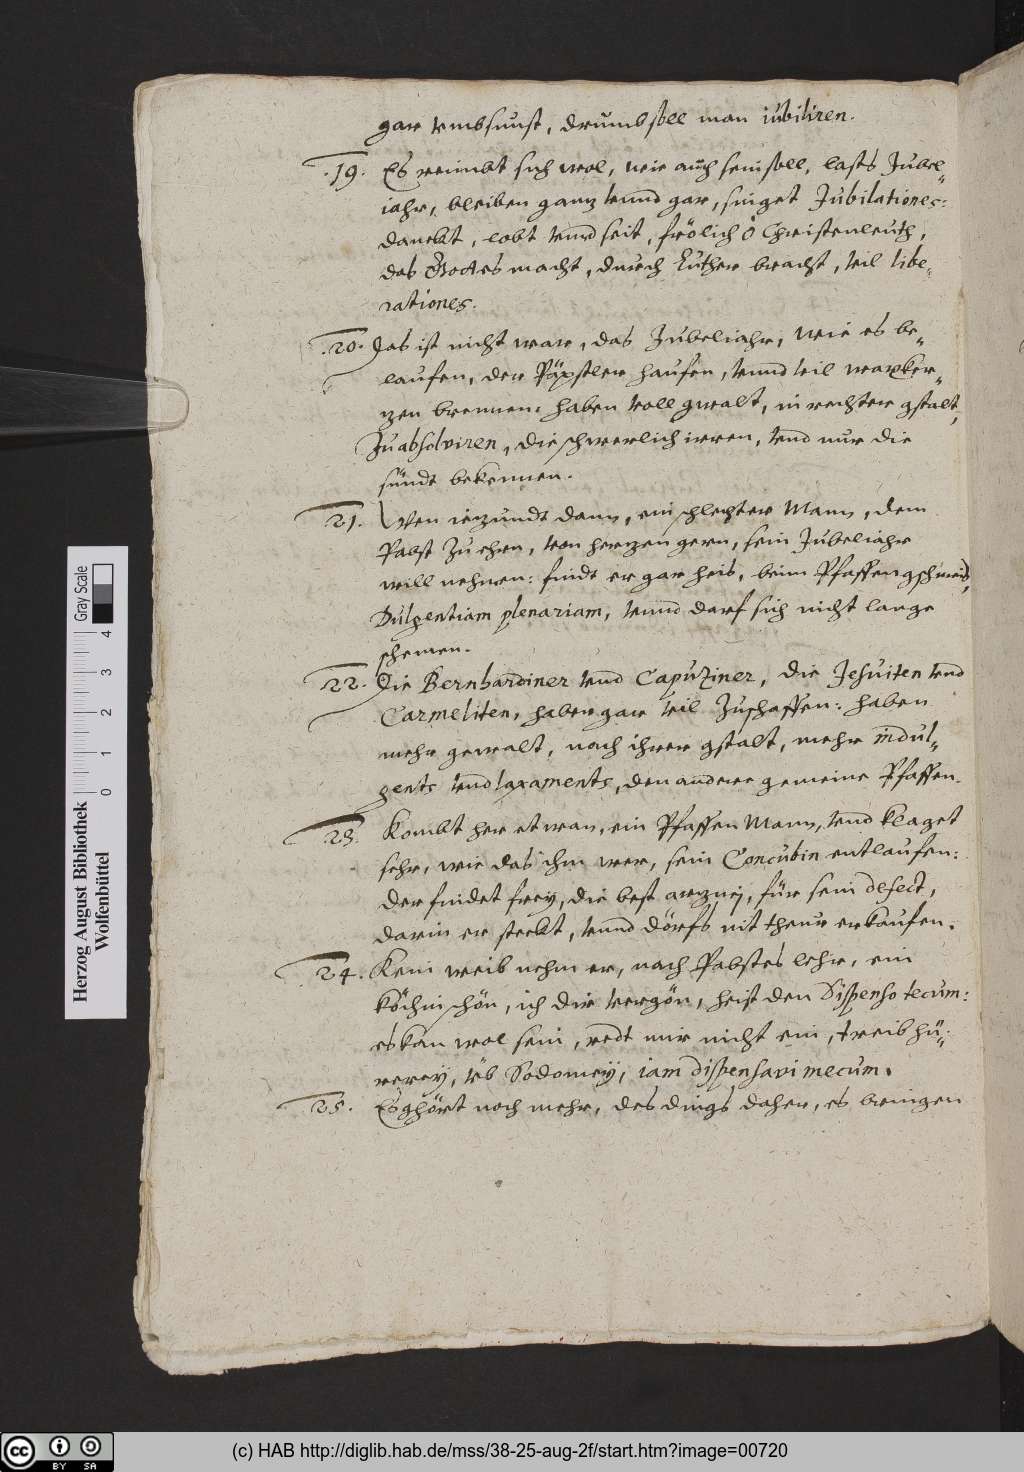 gar vmbsunst, drumb soll man iubiliren.
19. Es reimbt sich wol, wie auch sein soll, lasts Jubel„
iahr, bleiben ganz vnnd gar, singet Jubilationes:
danckt, lobt vnd seit, frölich ô Christenleuth,
das Gottes macht, durch Luther bracht, vil libe„
rationes.
20. Das ist nicht war, das Jubeliahr, wie es be„
laufen, der Päpstler haufen, vnnd vil waxker„
zen brennen: haben voll gwalt, in rechter gstalt,
Zu absolviren, die schwerlich irren, vnd nur die
sündt bekennen.
21. Wen iezundt dann, ein schlechter Mann, dem
Pabst zu ehrn, von herzen gern, sein Jubeliahr
will nehmen: findt er gar heis, beim Pfaffen gschmeis,
Dulgentiam plenariam, vnnd darf sich nicht lange
schemen.
22. Die Bernhardiner vnd Capuziner, die Jesuiten vnd
Carmeliten, haben gar vil Zuschaffen: haben
mehr gewalt, nach ihrer gstalt, mehr indul„
gents vnd laxaments, den andere gemeine Pfaffen.
23. Kombt her etwan, ein Pfaffen Mann, vnd klaget
sehr, wie das ihm wer, sein Concubin entlaufen:
der findet frey, die best arzney, für sein defect,
darin er steckt, vnnd dörfs nit theur erkaufen.
24. Kein weib nehm er, nach Pabstes lehr, ein
köchin schön, ich dir vergön, heist den Dispenso tecum:
es kan wol sein, redt mir nicht ein, treib hu„
rerey, üb Sodomey, iam dispensavi mecum.
25. Es ghört noch mehr, des dings daher, es bringen
Herzog August Bibliothek
Wolfenbüttel
0 1 2 3 4
Gray Scale
cc BY SA
(c) HAB http://diglib.hab.de/mss/38-25-aug-2f/start.htm?image=00720